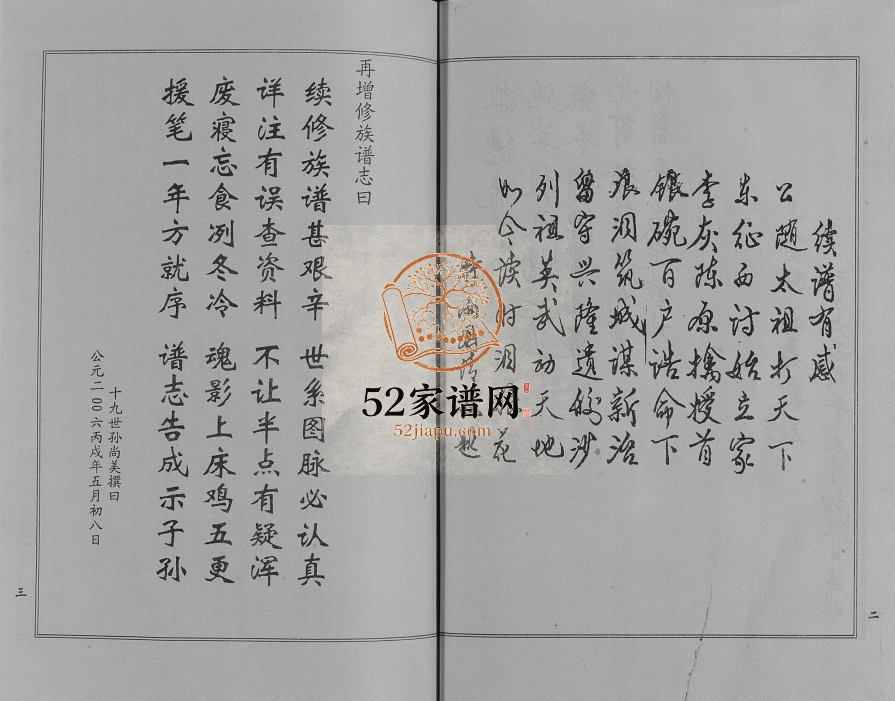 续谱有感
公随太祖打天下
东征西讨始立家
李灰陈原擒授首
银碗百户诰命下
痕泪筑城谋新治
留守兴隆遗金沙
列祖英武动天地
如今读时泪花
二
再增修族谱志曰
续修族谱甚艰辛 世系图脉必认真
详注有误查资料 不让半点有疑浑
废寝忘食冽冬冷 魂影上床鸡五更
援笔一年方就序 谱志告成示子孙
十九世孙尚美撰曰
公元二00六丙戌年五月初八日
三
52家谱网
52jiapu.com